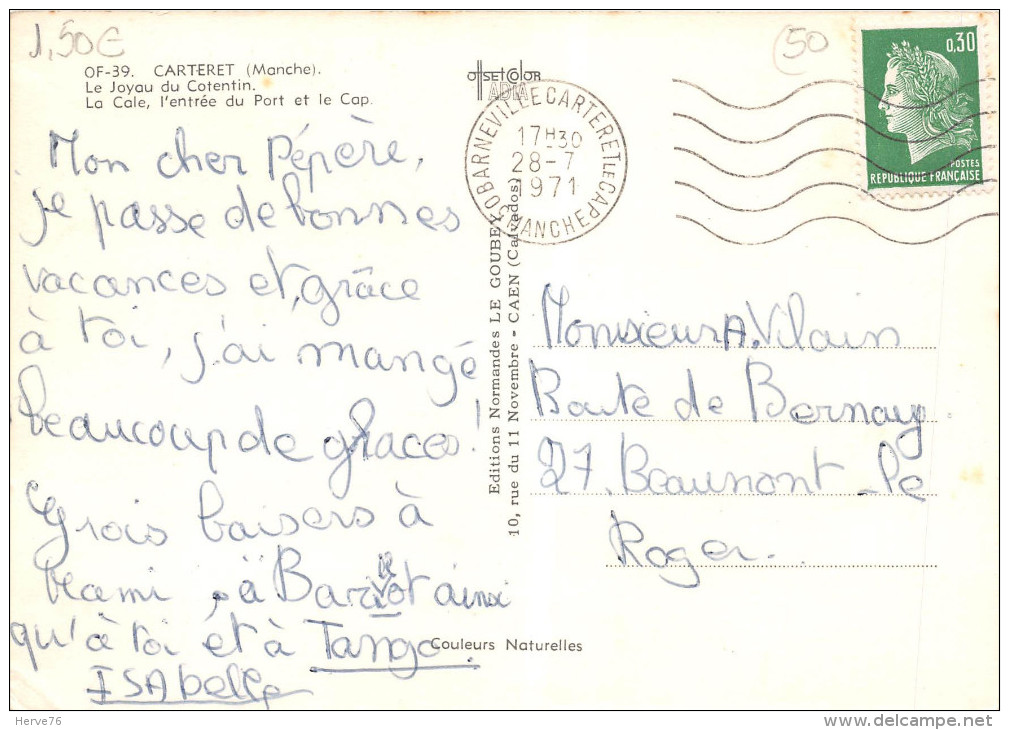 1,50€
50
OF-39. CARTERET (Manche).
Le Joyau du Cotentin.
La Cale, l'entrée du Port et le Cap.
OFFSETCOLOR
ADIA
50 BARNEVILLE CARTERET LE CAP
MANCHE
17H30
28-7
1971
0,30
POSTES
REPUBLIQUE FRANÇAISE
Mon cher Pépère,
je passe de bonnes
vacances et, grâce
à toi, j'ai mangé
beaucoup de glaces!
Grois baisers à
à ainsi
qu'à toi et à Tango.
ISAbelle
Editions Normandes LE GOUBEY
10, rue du 11 Novembre - CAEN (Calvados)
Monsieur A. Vilain
Route de Bernay
27. Beaumont-le
Roger.
Couleurs Naturelles
Herve76
www.delcampe.net